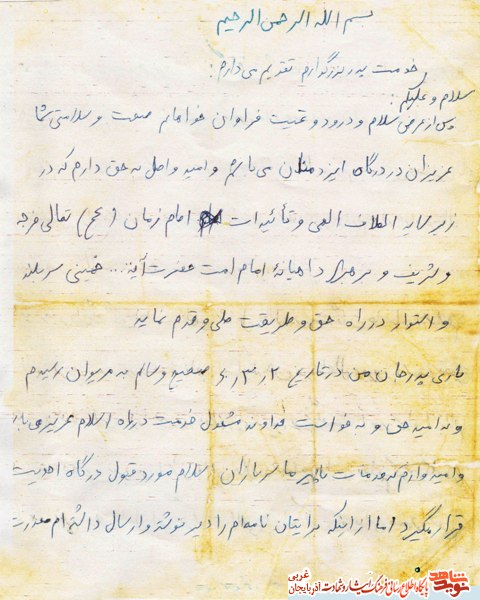 بسم الله الرحمن الرحیم
خدمت پدر بزرگوارم تقدیم می دارم:
سلام و علیکم:
پس از عرض سلام و درود و تحیت فراوان خواهانم صحت و سلامتی شما
عزیزان در درگاه ایزد منان می باشم و امید واصل به حق دارم که در
زیر سایه الطاف الهی و تأئیدات امام زمان (عج) تعالی فرجه
و شریف و رهبری داهیانه امام امت حضرت آیة... خمینی سربلند
و استوار در راه حق و طریقت طی و قدم نمایید
باری پدر جان من در تاریخ ۲ر۳ر۶ صحیح و سالم به مریوان رسیدم
و به امید حق و به خواست خداوند مشغول خدمت در راه اسلام عزیز می
و امیدوارم که خدمات ناچیز ما سربازان اسلام مورد قبول درگاه احدیت
قرار بگیرد اما از اینکه برایتان نامه ام را دیر نوشته و ارسال داشته ام معذرت
نوید شاهد
پایگاه اطلاع رسانی فرهنگ ایثار و شهادت آذربایجان غربی